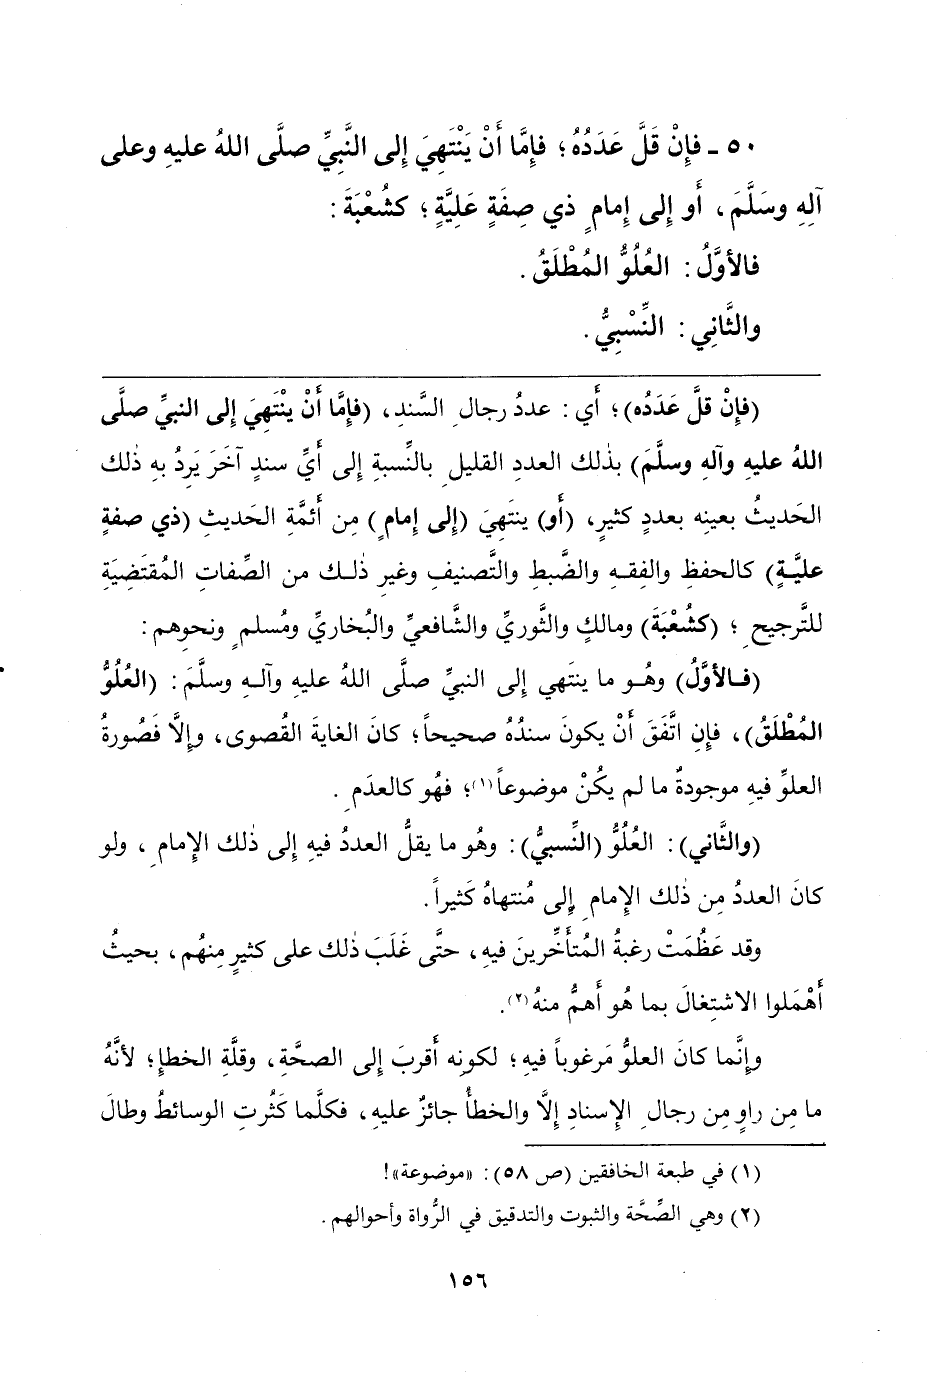 ٥٠ ـ فإِنْ قَلَّ عَدَدُهُ؛ فإِمَّا أَنْ يَنْتَهِيَ إِلى النَّبِيِّ صلَّى اللهُ عليهِ وعلى
آلِهِ وسَلَّمَ، أَو إِلى إِمامٍ ذي صِفَةٍ عَلِيَّةٍ؛ كشُعْبَةَ:
فالأوَّلُ: العُلُوُّ المُطْلَقُ.
والثَّانِي: النِّسْبِيُّ.
(فإِنْ قلَّ عَدَدُه)؛ أَي: عددُ رجالِ السَّندِ، (فإِمَّا أَنْ ينْتَهِيَ إِلى النبيِّ صلَّى
اللهُ عليهِ وآلهِ وسلَّمَ) بذٰلك العددِ القليلِ بالنِّسبةِ إِلى أَيِّ سندٍ آخَرَ يَرِدُ بهِ ذٰلك
الحَديثُ بعينِه بعددٍ كثيرٍ، (أَو) ينتَهِيَ (إِلى إِمامٍ) مِن أَئمَّةِ الحَديثِ (ذي صفةٍ
عليَّةٍ) كالحفظِ والفِقهِ والضَّبطِ والتَّصنيفِ وغيرِ ذٰلك من الصِّفاتِ المُقتَضِيَةِ
للتَّرجيحِ؛ (كشُعْبَةَ) ومالكٍ والثَّوريِّ والشَّافعيِّ والبُخاريِّ ومُسلمٍ ونحوِهم:
(فالأوَّلُ) وهُو ما ينتَهي إِلى النبيِّ صلَّى اللهُ عليهِ وآلهِ وسلَّمَ: (العُلُوُّ
المُطْلَقُ)، فإِنِ اتَّفَقَ أَنْ يكونَ سندُهُ صحيحاً؛ كانَ الغايةَ القُصوى، وإِلَّا فَصُورةُ
العلوِّ فيهِ موجودةٌ ما لم يكُنْ موضوعاً(١)؛ فهُو كالعدَمِ.
(والثَّاني): العُلُوُّ (النِّسبيُّ): وهُو ما يقلُّ العددُ فيهِ إِلى ذٰلك الإِمامِ، ولو
كانَ العددُ مِن ذٰلك الإِمامِ إِلى مُنتهاهُ كَثيراً.
وقد عَظُمَتْ رغبةُ المُتأَخِّرينَ فيهِ، حتَّى غَلَبَ ذٰلك على كثيرٍ مِنهُم، بحيثُ
أَهْمَلوا الاشتِغالَ بما هُو أَهمُّ منهُ(٢).
وإِنَّما كانَ العلوُّ مَرغوباً فيهِ؛ لكونِه أَقربَ إِلى الصحَّةِ، وقلَّةِ الخطإِ؛ لأنَّهُ
ما مِن راوٍ مِن رجالِ الإِسنادِ إِلَّا والخطأُ جائزٌ عليهِ، فكلَّما كَثُرتِ الوسائطُ وطالَ
(١) في طبعة الخافقين (ص ٥٨): «موضوعة»!
(٢) وهي الصِّحَّة والثبوت والتدقيق في الرُّواة وأحوالهم.
١٥٦